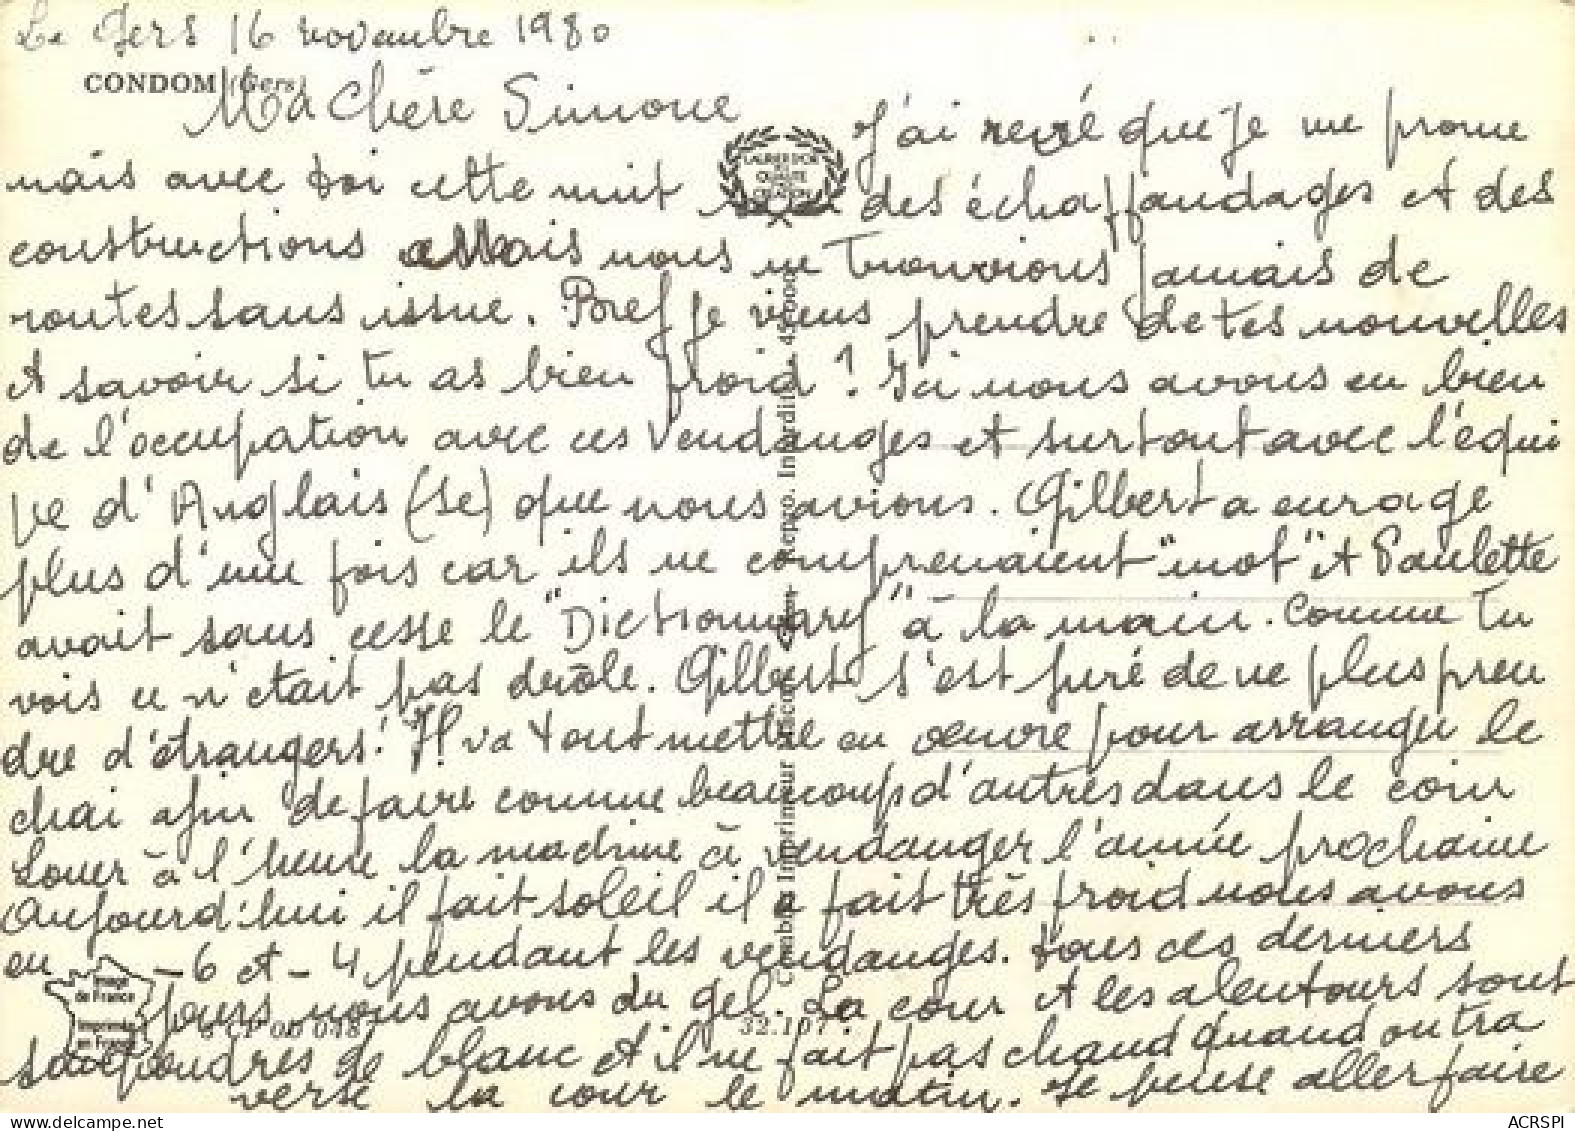 Le Gers 16 novembre 1980
CONDOM (Gers)
Ma Chère Simone
J'ai revé que je me prome
nais avec toi cette nuit des échaffaudages et des
constructions Mais nous ne trouvions jamais de
routes sans issue. Bref je viens prendre de tes nouvelles
et savoir si tu as bien froid? Ici nous avons eu bien
de l'occupation avec ces vendanges et surtout avec l'équi
pe d'Anglais (se) que nous avions. Gilbert a eu rage
plus d'une fois car ils ne comprenaient "mot" et Paulette
avait sans cesse le "Dictionnary" à la main. Comme tu
vois ce n'était pas drôle. Gilbert s'est juré de ne plus pren
dre d'étrangers! Il va tout mettre en oeuvre pour arranger le
chai afin de faire comme beaucoup d'autres dans le coin
Louer à l'heure la machine à vendanger l'année prochaine
Aujourd'hui il fait soleil il a fait très froid nous avons
eu -6 et -4 pendant les vendanges. tous ces derniers
jours nous avons du gel. La cour et les alentours sont
saupoudrés de blanc et il ne fait pas chaud quand on tra
verse la cour le matin. Je pense aller faire
LAURIER D'OR
QUALITE
Combier Imprimeur Mâcon Repro. Interdite
Image
de France
Imprimée
en France
32.107
ACRSPI